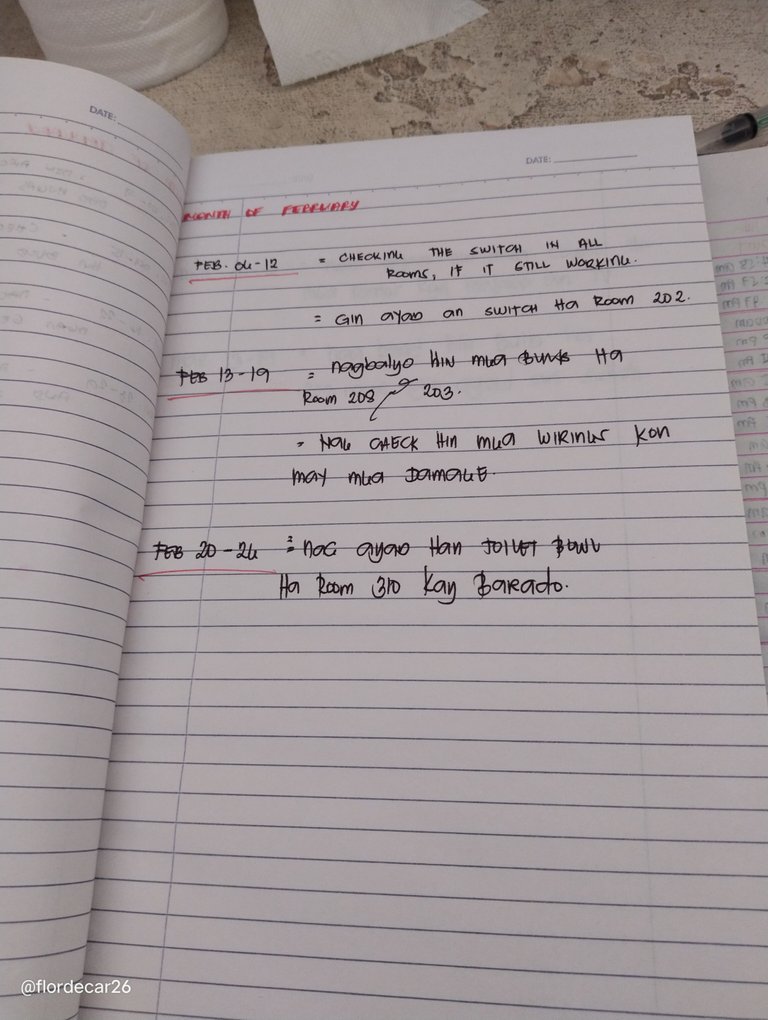 DATE:
DATE:
MONTH OF FEBRUARY
FEB. 06-12 = CHECKING THE SWITCH IN ALL
ROOMS, IF IT STILL WORKING.
= GIN ayao an SWITCH Ha Room 202.
FEB 13-19 = nagbalyo HIN mga BULBS Ha
Room 208 & 203.
= NAG CHECK HIN mga WIRINGS KON
may mga DAMAGE.
FEB 20-26 = nag ayao Han TOILET BOWL
Ha Room 310 kay Barado.
@flordecar26